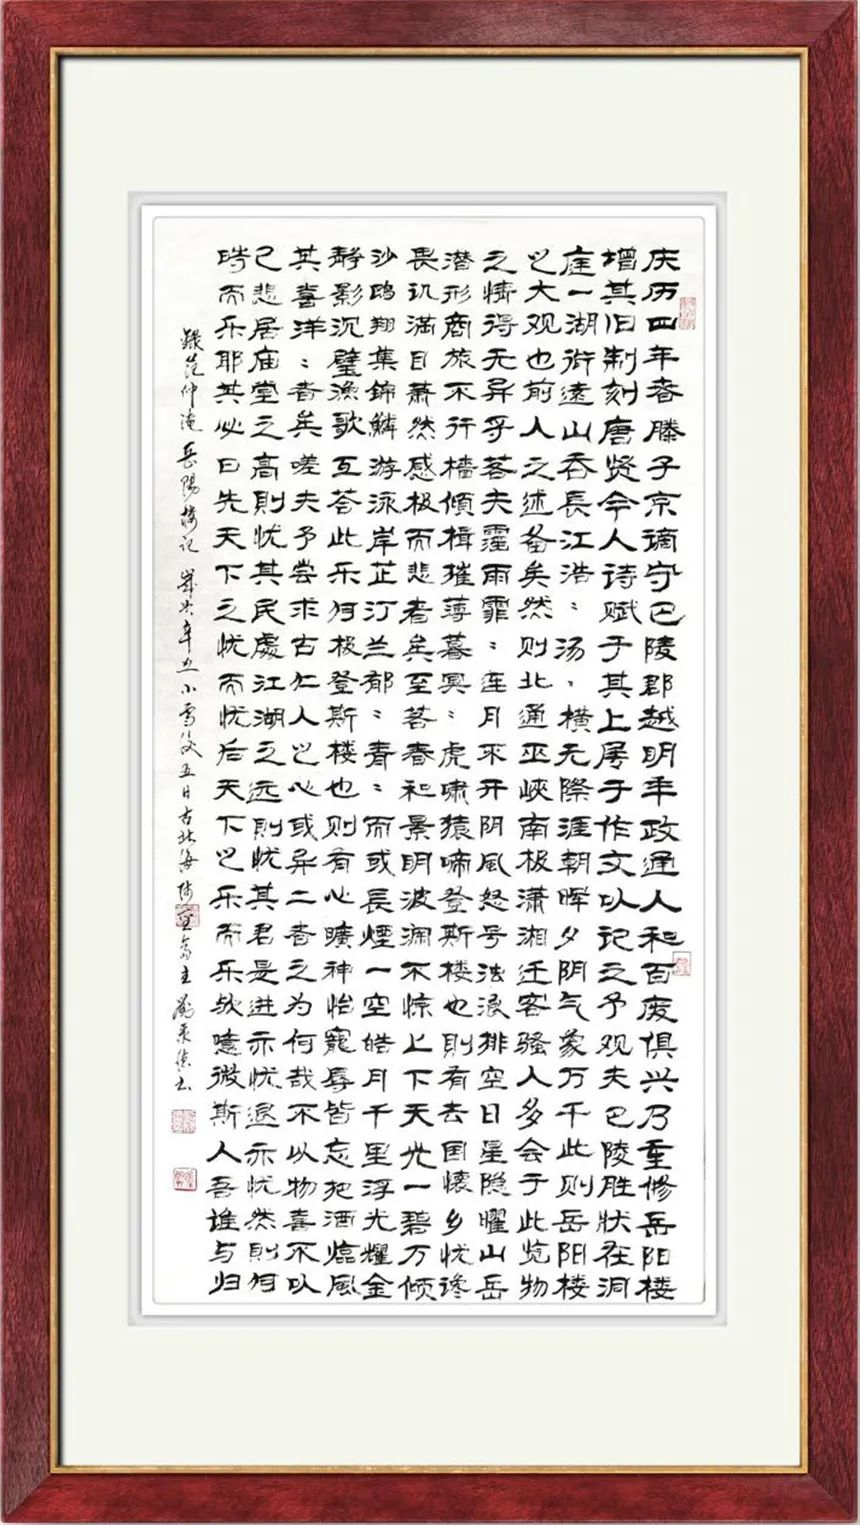 庆历四年春滕子京谪守巴陵郡越明年政通人和百废俱兴乃重修岳阳楼
增其旧制刻唐贤今人诗赋于其上属于作文以记之予观夫巴陵胜状在洞
庭一湖衔遠山吞長江浩〻汤〻横无際涯朝晖夕阴气象万千此则岳阳楼
之大观也前人之述备矣然则北通巫峡南极潇湘迁客骚人多会于此览物
之情得无异乎若夫霪雨霏〻连月不开阴风怒号浊浪排空日星隐曜山岳
潜形商旅不行樯倾楫摧薄暮冥〻虎啸猿啼登斯楼也則有去国懷乡忧谗
畏讥满目萧然感极而悲者矣至若春和景明波澜不惊上下天光一碧万倾
沙鸥翔集錦鱗游泳岸芷汀兰郁〻青〻而或長煙一空皓月千里浮光耀金
静影沉璧渔歌互荅此乐何极登斯楼也则有心曠神怡寵辱皆忘把酒临風
其喜洋〻者矣嗟夫予尝求古仁人之心或异二者之为何哉不以物喜不以
己悲居庙堂之高則忧其民處江湖之远則忧其君是进亦忧退亦忧然則何
時而乐耶其必曰先天下之忧而忧后天下之乐而乐欤噫微斯人吾谁与归
録范仲淹岳陽楼记 歲次辛丑小雪後五日古北海 斋主 书